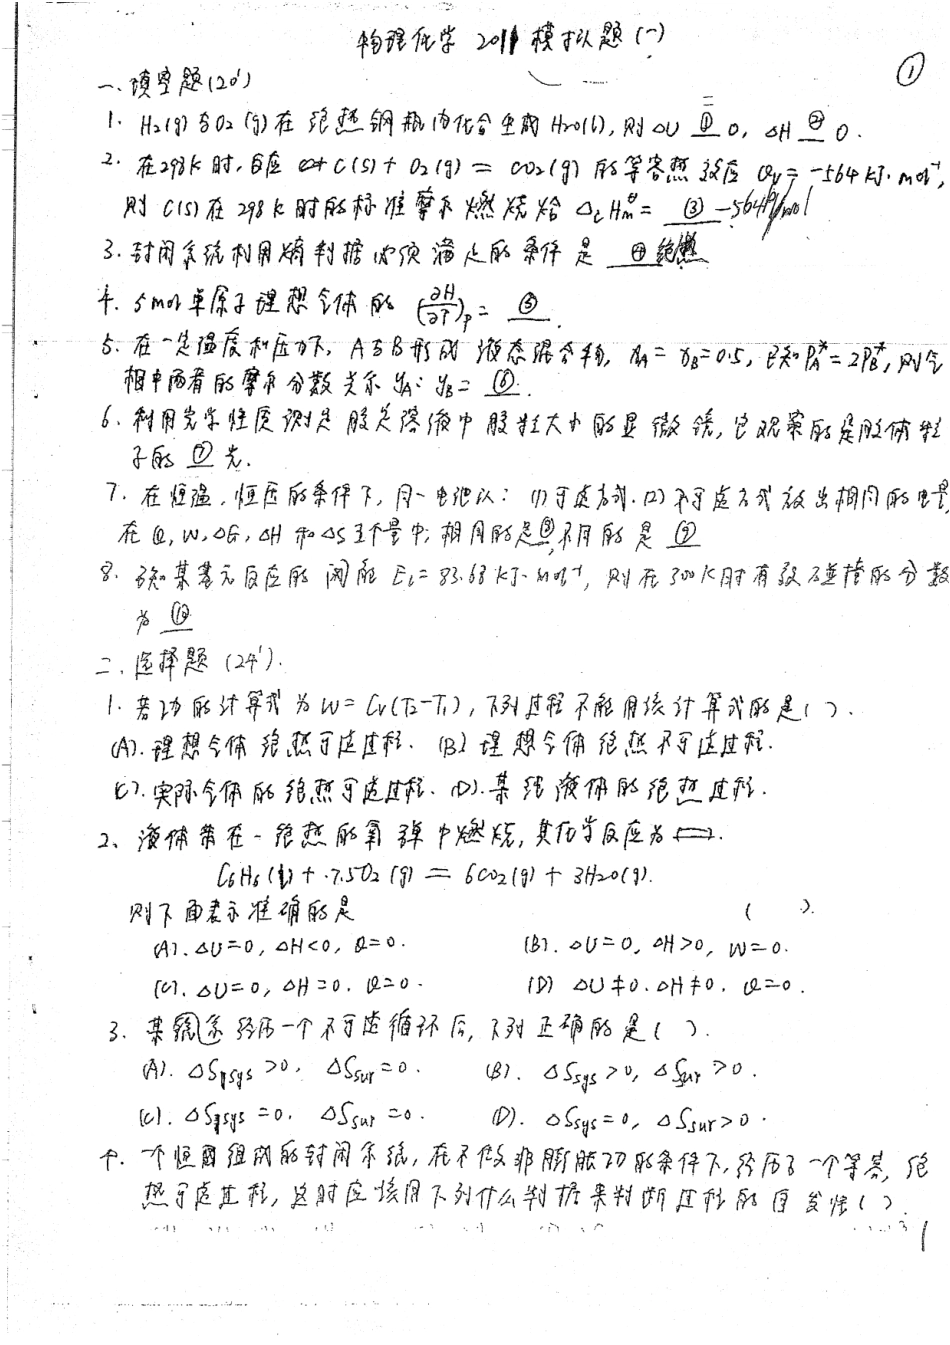 物理化学 2011 模拟题(一)
①
一、填空题(20')
1. H₂(g)与O₂(g)在绝热钢瓶内化合生成H₂O(l), 则ΔU ① 0, ΔH ② 0.
=
2. 在298K时, 反应 C(s) + O₂(g) = CO₂(g) 的等容热效应 Qv = -564 kJ·mol⁻¹,
则 C(s) 在 298K时的标准摩尔燃烧焓 ΔcHm^θ = ③ -564
3. 封闭系统利用熵判据必须满足的条件是 ④ 绝热
4. 5mol单原子理想气体的 (∂H/∂T)p = ⑤.
5. 在一定温度和压力下, A与B形成液态混合物, xA = xB = 0.5, 已知PA* = 2PB*, 则气
相中两者的摩尔分数关系 yA: yB = ⑥.
6. 利用光学性质测定胶体溶液中胶粒大小的显微镜, 它观察的是胶体粒
子的 ⑦ 光.
7. 在恒温, 恒压的条件下, 同一电池以: (1)可逆方式. (2)不可逆方式放出相同的电量,
在 Q, W, ΔG, ΔH 和 ΔS 五个量中; 相同的是⑧, 不同的是 ⑨
8. 已知某基元反应的阈能 Ec = 83.68 kJ·mol⁻¹, 则在300K时有效碰撞的分数
为 ⑩
二、选择题 (24').
1. 若功的计算式为 W = Cv(T₂-T₁), 下列过程不能用该计算式的是( ).
(A). 理想气体绝热可逆过程. (B) 理想气体绝热不可逆过程.
(C). 实际气体的绝热可逆过程. (D). 某纯液体的绝热过程.
2、液体苯在一绝热的氧弹中燃烧, 其化学反应为
C₆H₆(l) + 7.5O₂(g) = 6CO₂(g) + 3H₂O(g).
则下面表示准确的是 ( ).
(A). ΔU=0, ΔH<0, Q=0. (B). ΔU=0, ΔH>0, W=0.
(C). ΔU=0, ΔH=0. Q=0. (D) ΔU≠0. ΔH≠0. Q=0.
3. 某系统经历一个不可逆循环后, 下列正确的是( ).
(A). ΔSsys>0, ΔSsur=0. (B). ΔSsys>0, ΔSsur>0.
(C). ΔSsys=0. ΔSsur=0. (D). ΔSsys=0, ΔSsur>0.
4. 一个恒组成的封闭系统, 在不做非膨胀功的条件下, 经历了一个等容, 绝
热可逆过程, 这时应该用下列什么判据来判断过程的自发性( )
1